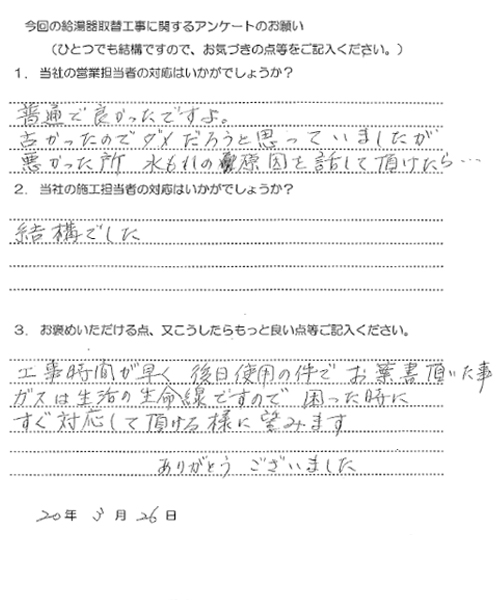 今回の給湯器取替工事に関するアンケートのお願い
（ひとつでも結構ですので、お気づきの点等をご記入ください。）
1．当社の営業担当者の対応はいかがでしょうか？
普通で良かったですよ。
古かったのでダメだろうと思っていましたが
悪かった所 水もれの原因を話して頂けたら…
2．当社の施工担当者の対応はいかがでしょうか？
結構でした
3．お褒めいただける点、又こうしたらもっと良い点等ご記入ください。
工事時間が早く 後日使用の件で お葉書頂いた事
ガスは生活の生命線ですので 困った時に
すぐ対応して頂ける様に望みます
ありがとう ございました
20年 3月 26日